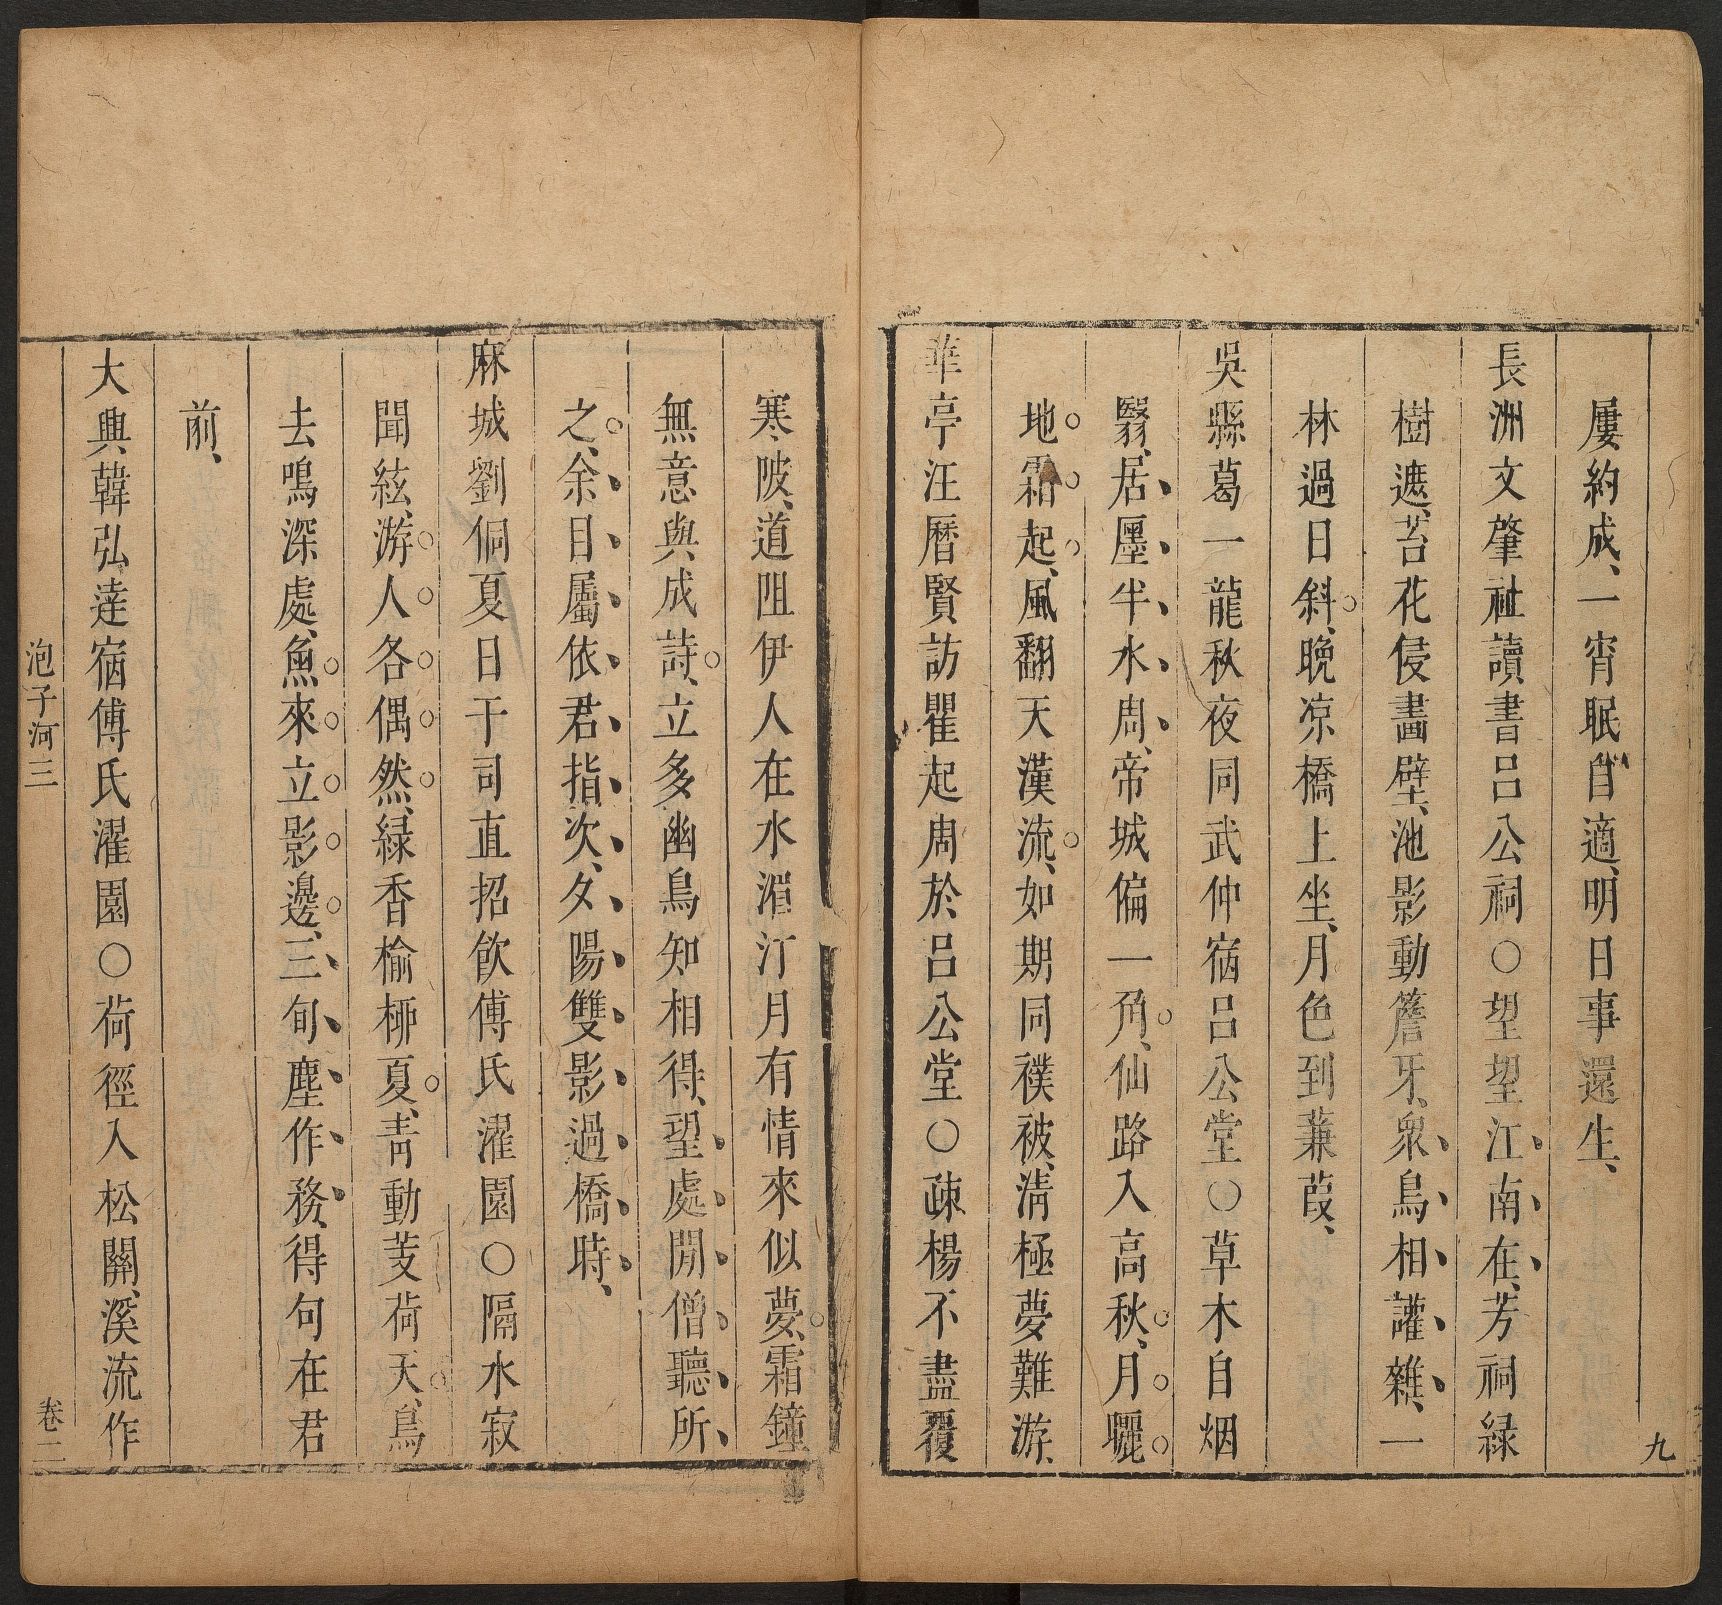 屢約成、一宵眠自適、明日事還生、
長洲文肇祉讀書呂公祠○望望江南在、芳祠綠
樹遮、苔花侵畫壁、池影動簷牙、衆鳥相讙雜、一
林過日斜、晚凉橋上坐、月色到蒹葭、
吳縣葛一龍秋夜同武仲宿呂公堂○草木自烟
翳、居廛半水周、帝城偏一角、仙路入高秋、月曬
地霜起、風翻天漢流、如期同襆被、淸極夢難游、
華亭汪曆賢訪瞿起周於呂公堂○疎楊不盡覆
九
寒陂、道阻伊人在水湄汀月有情來似夢、霜鐘
無意與成詩、立多幽鳥知相得、望處閒僧聽所
之、余目屬依君指次、夕陽雙影過橋時、
麻城劉侗夏日于司直招飮傅氏濯園○隔水寂
聞絃、游人各偶然、綠香榆柳夏、靑動芰荷天、鳥
去鳴深處、魚來立影邊、三旬塵作務、得句在君
前、
大興韓弘逹宿傅氏濯園○荷徑入松關、溪流作
泡子河三
卷二